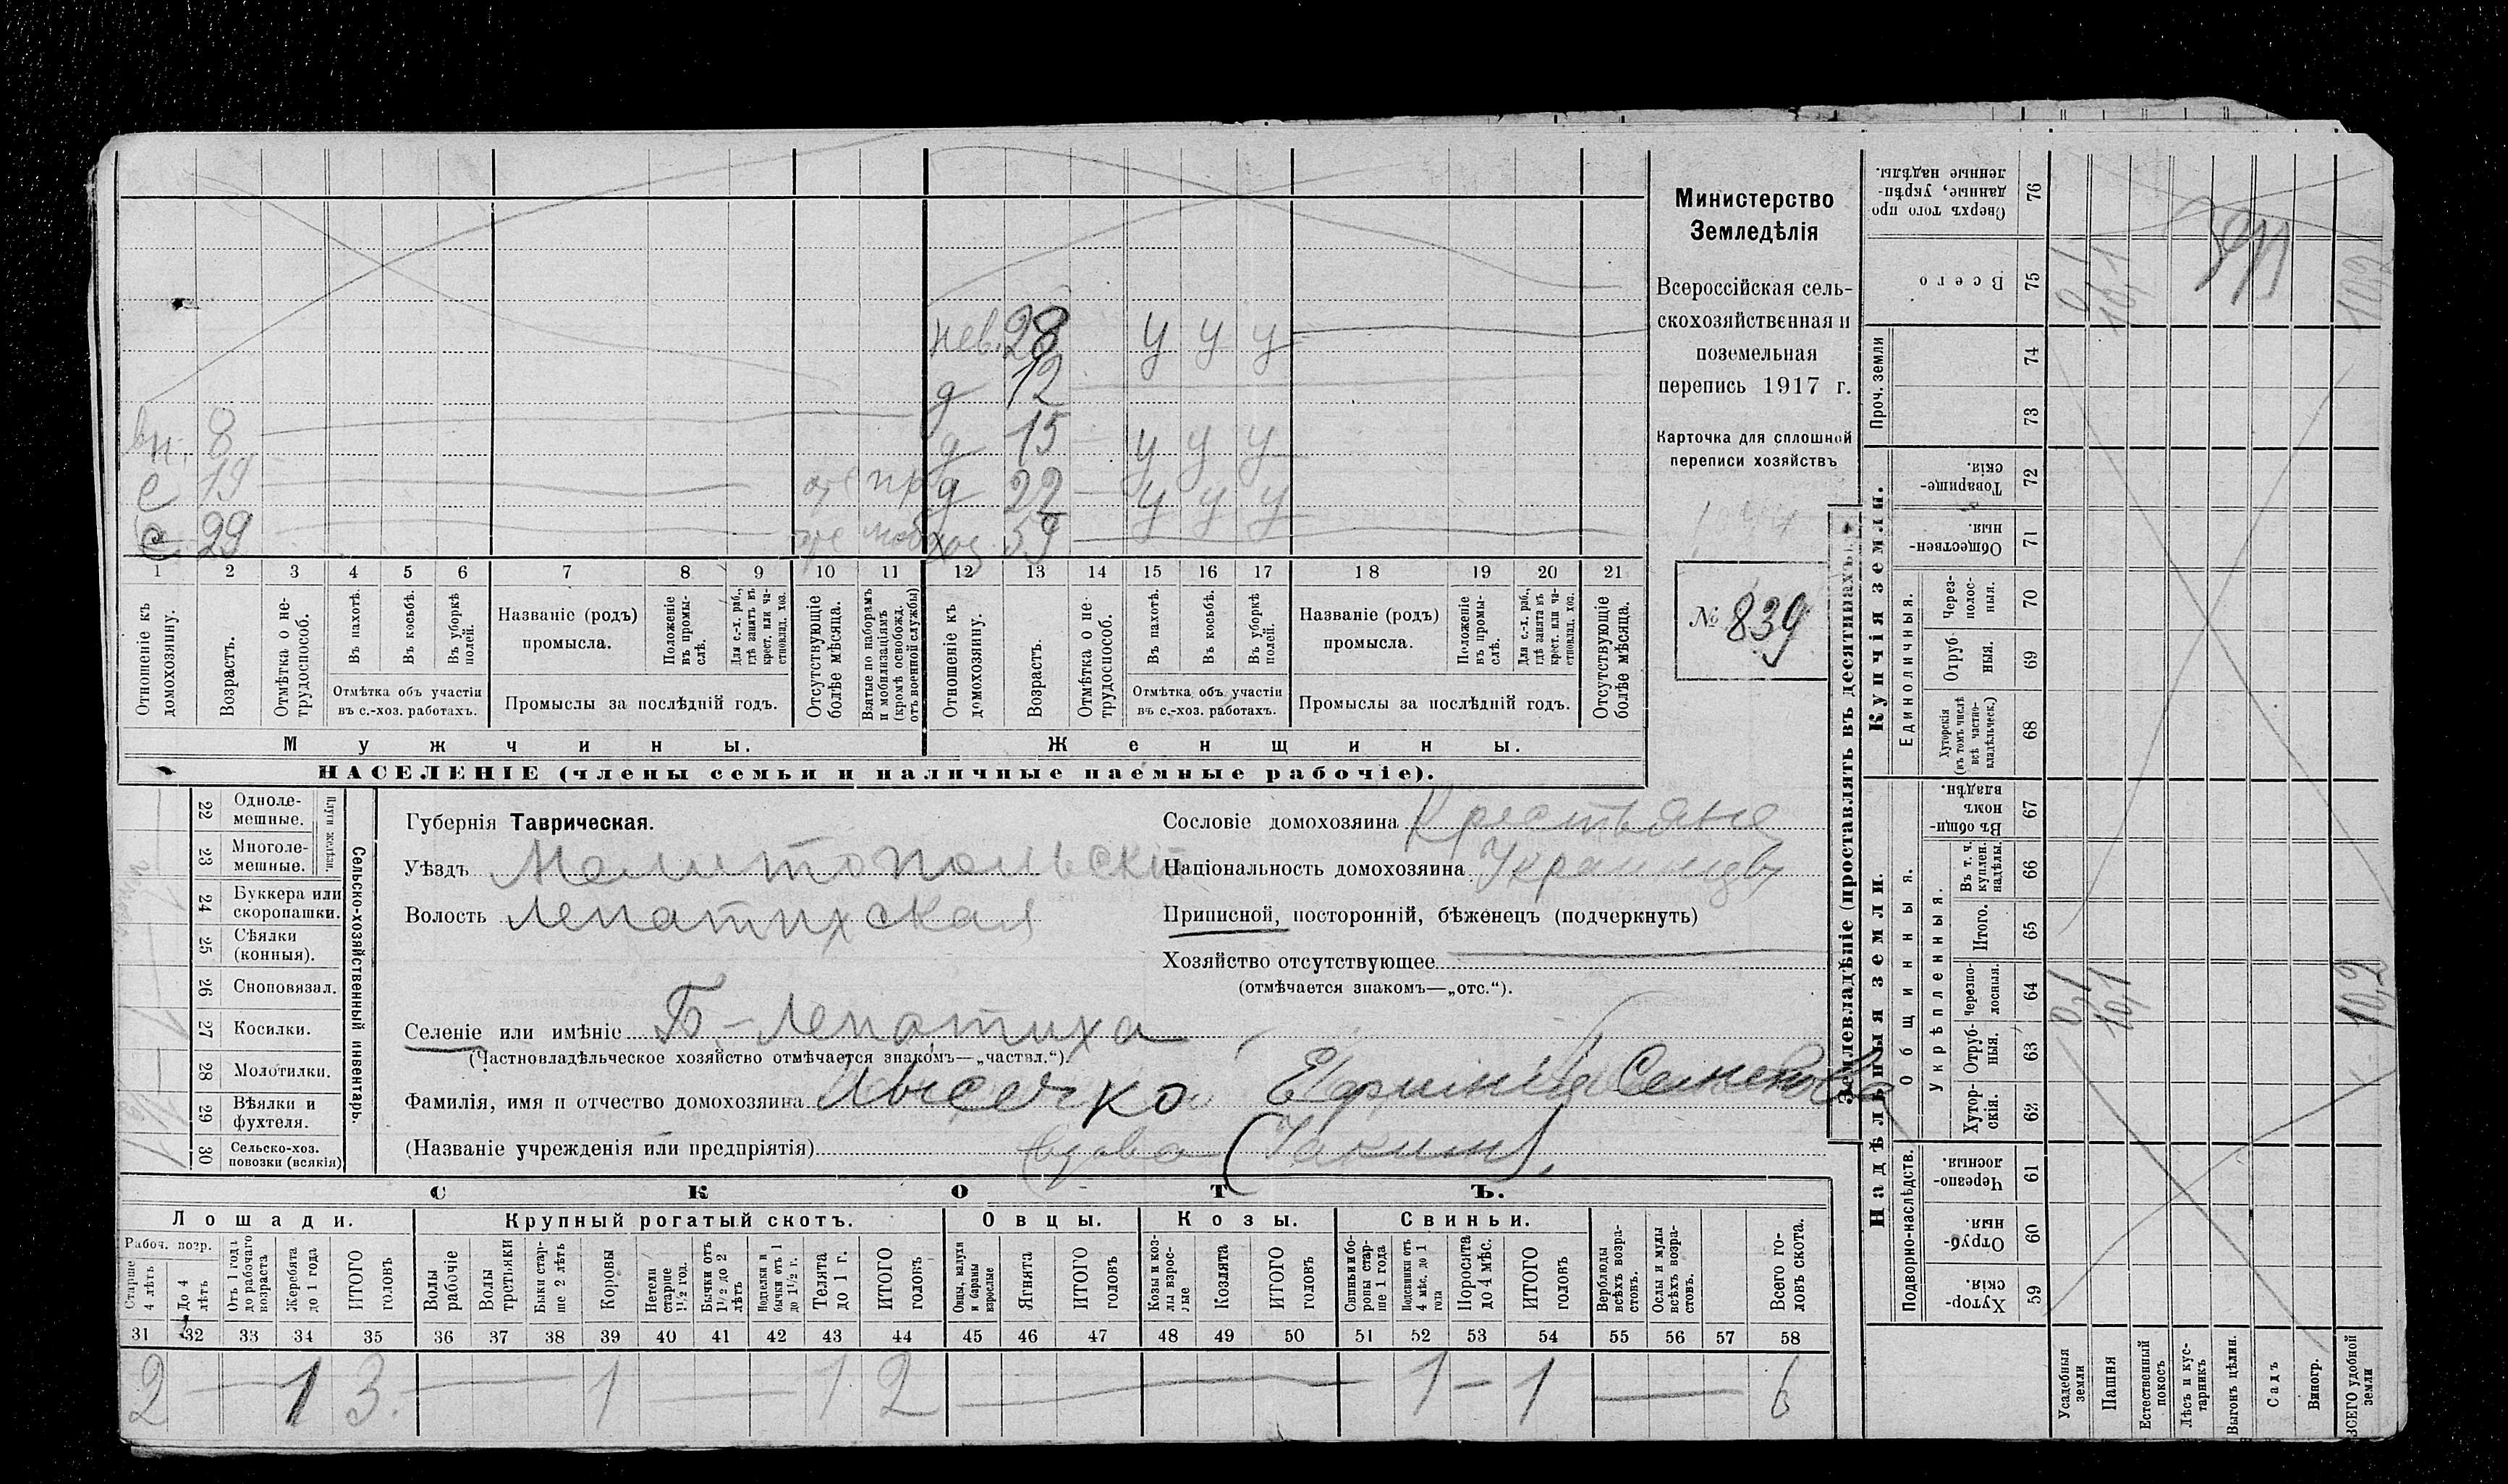 нев. 28 У У У
д 12
вн. 8 д 15 У У У
с 19 отс пр д 22 У У У
с 29 отс моб хоз 59
1 2 3 4 5 6 7 8 9 10 11 12 13 14 15 16 17 18 19 20 21
Отношеніе къ домохозяину.
Возрастъ.
Отмѣтка о не-трудоспособ.
Въ пахотѣ.
Въ косьбѣ.
Въ уборкѣ полей.
Отмѣтка объ участіи
въ с.-хоз. работахъ.
Названіе (родъ)
промысла.
Положеніе въ промы-слѣ.
Для с.-х. раб., гдѣ занятъ въ крест. или ча-стновлад. хоз.
Промыслы за послѣдній годъ.
Отсутствующіе болѣе мѣсяца.
Взятые по наборамъ и мобилизаціямъ (кромѣ освобожд. отъ военной службы)
Отношеніе къ домохозяину.
Возрастъ.
Отмѣтка о не-трудоспособ.
Въ пахотѣ.
Въ косьбѣ.
Въ уборкѣ полей.
Отмѣтка объ участіи
въ с.-хоз. работахъ.
Названіе (родъ)
промысла.
Положеніе въ промы-слѣ.
Для с.-х. раб., гдѣ занята въ крест. или ча-стновлад. хоз.
Промыслы за послѣдній годъ.
Отсутствующіе болѣе мѣсяца.
Мужчины. Женщины.
НАСЕЛЕНІЕ (члены семьи и наличные наемные рабочіе).
Министерство
Земледѣлія
Всероссійская сель-
скохозяйственная и
поземельная
перепись 1917 г.
Карточка для сплошной
переписи хозяйствъ
№ 839
22 Одноле-мешные.
23 Многоле-мешные.
Плуги желѣзн.
24 Буккера или скоропашки.
25 Сѣялки (конныя).
26 Сноповязал.
27 Косилки.
28 Молотилки.
29 Вѣялки и фухтеля.
30 Сельско-хоз. повозки (всякія)
Сельско-хозяйственный инвентарь.
Губернія Таврическая.
Уѣздъ Мелитопольскій
Волость Лепатихская
Селеніе или имѣніе Б.-Лепатиха
(Частновладѣльческое хозяйство отмѣчается знакомъ—„частвл.“).
Сословіе домохозяина Крестьяне
Національность домохозяина Украинцы
Приписной, посторонній, бѣженецъ (подчеркнуть)
Хозяйство отсутствующее
(отмѣчается знакомъ—„отс.“).
Фамилія, имя и отчество домохозяина Евфимія Семенова
(Названіе учрежденія или предпріятія) вдова (Яким)
СКОТЪ.
Лошади. Крупный рогатый скотъ. Овцы. Козы. Свиньи.
Рабоч. возр.
Старше 4 лѣтъ
До 4 лѣтъ
Отъ 1 года до рабочаго возраста
Жеребята до 1 года
ИТОГО головъ
Волы рабочіе
Волы третьяки
Быки стар-ше 2 лѣтъ
Коровы
Нетели старше 1½ год.
Бычки отъ 1½ до 2 лѣтъ
Подтелки и бычки отъ 1 до 1½ г.
Телята до 1 г.
ИТОГО головъ
Овцы, валухи и бараны взрослые
Ягнята
ИТОГО головъ
Козы и коз-лы взрос-лые
Козлята
ИТОГО головъ
Свиньи и бо-ровы стар-ше 1 года
Подсвинки отъ 4 мѣс. до 1 года
Поросята до 4 мѣс.
ИТОГО головъ
Верблюды всѣхъ возра-стовъ.
Ослы и мулы всѣхъ возра-стовъ.
Всего го-ловъ скота.
31 32 33 34 35 36 37 38 39 40 41 42 43 44 45 46 47 48 49 50 51 52 53 54 55 56 57 58
2 — 1 3 — 1 — 1 2 — 1 — 1 — 6
Землевладѣніе (проставлять въ десятинахъ).
Купчія земли.
Надѣльныя земли.
Сверхъ того про данные, укрѣп-ленные надѣлы. 76
Всего 75
Проч. земли 74 73
Товарище-скія. 72
Обществен-ныя. 71
Единоличныя.
Через-полос-ныя. 70
Отруб-ныя. 69
Хуторскія (въ томъ числѣ всѣ частно-владѣльческ.) 68
Общинныя.
Въ общи-номъ владѣн. 67
Укрѣпленныя.
Въ т. ч. куплен. надѣлы. 66
Итого. 65
Черезпо-лосныя. 64
Отруб-ныя. 63
Хутор-скія. 62
Подворно-наслѣдств.
Черезпо-лосныя. 61
Отруб-ныя. 60
Хутор-скія. 59
Усадебныя земли
Пашня
Естественный покосъ
Лѣсъ и кус-тарникъ
Выгонъ цѣлин.
Садъ
Виногр.
ВСЕГО удобной земли
0,1 10,1 10,2
0,1 10,1 10,2